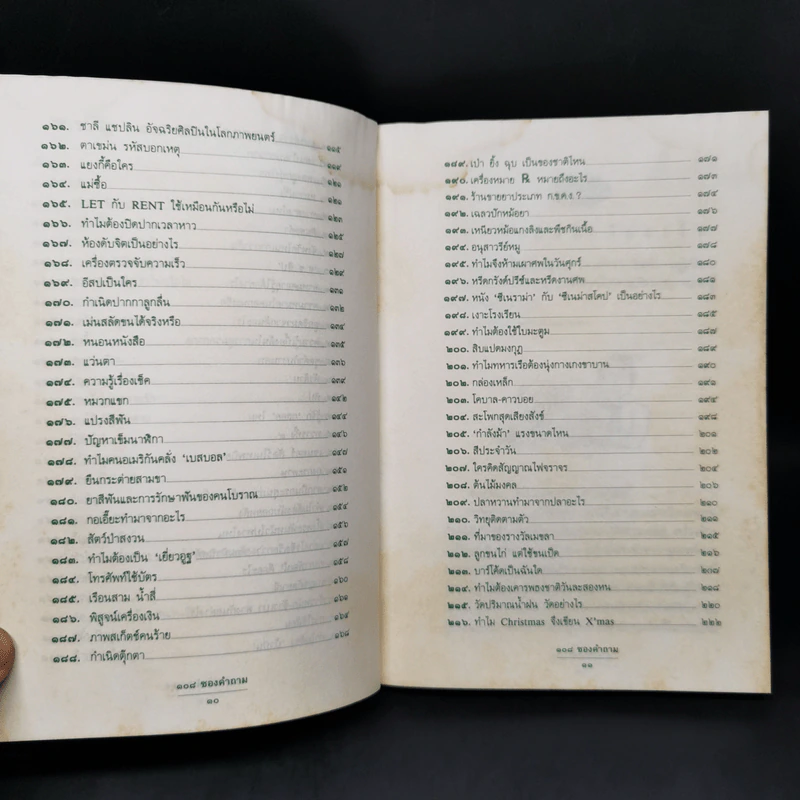 ๑๖๑. ชาลี แชปลิน อัจฉริยศิลปินในโลกภาพยนตร์ ๑๑๕
๑๖๒. ตาเขม่น รหัสบอกเหตุ ๑๑๙
๑๖๓. แยงกี้คือใคร ๑๒๑
๑๖๔. แม่ซื้อ ๑๒๑
๑๖๕. LET กับ RENT ใช้เหมือนกันหรือไม่ ๑๒๓
๑๖๖. ทำไมต้องปิดปากเวลาหาว ๑๒๕
๑๖๗. ห้องดับจิตเป็นอย่างไร ๑๒๗
๑๖๘. เครื่องตรวจจับความเร็ว ๑๒๙
๑๖๙. อีสปเป็นใคร ๑๓๑
๑๗๐. กำเนิดปากกาลูกลื่น ๑๓๒
๑๗๑. เม่นสลัดขนได้จริงหรือ ๑๓๔
๑๗๒. หนอนหนังสือ ๑๓๕
๑๗๓. แว่นตา ๑๓๖
๑๗๔. ความรู้เรื่องเช็ค ๑๓๙
๑๗๕. หมวกแขก ๑๔๒
๑๗๖. แปรงสีฟัน ๑๔๔
๑๗๗. ปัญหาเข็มนาฬิกา ๑๔๖
๑๗๘. ทำไมคนอเมริกันคลั่ง ‘เบสบอล’ ๑๔๗
๑๗๙. ยืนกระต่ายสามขา ๑๕๑
๑๘๐. ยาสีฟันและการรักษาฟันของคนโบราณ ๑๕๒
๑๘๑. กอเอี๊ยะทำมาจากอะไร ๑๕๔
๑๘๒. สัตว์ป่าสงวน ๑๕๖
๑๘๓. ทำไมต้องเป็น ‘เยี่ยวอูฐ’ ๑๕๘
๑๘๔. โทรศัพท์ใช้บัตร ๑๖๐
๑๘๕. เรือนสาม น้ำสี่ ๑๖๑
๑๘๖. พิสูจน์เครื่องเงิน ๑๖๔
๑๘๗. ภาพสเก็ตช์คนร้าย ๑๖๕
๑๘๘. กำเนิดตุ๊กตา ๑๖๘
๑๐๘ ซองคำถาม
๑๐
๑๘๙. เปา ยิ้ง ฉุบ เป็นของชาติไหน ๑๗๑
๑๙๐. เครื่องหมาย ℞ หมายถึงอะไร ๑๗๓
๑๙๑. ร้านขายยาประเภท ก.ข.ค.ง.? ๑๗๔
๑๙๒. เฉลวปักหม้อยา ๑๗๖
๑๙๓. เหนียวหม้อแกงลิงและพืชกินเนื้อ ๑๗๗
๑๙๔. อนุสาวรีย์หมู ๑๗๘
๑๙๕. ทำไมจึงห้ามเผาศพในวันศุกร์ ๑๘๐
๑๙๖. หรีดกรังด์ปรีซ์และหรีดงานศพ ๑๘๑
๑๙๗. หนัง ‘ซีเนราม่า’ กับ ‘ซีเนม่าสโคป’ เป็นอย่างไร ๑๘๓
๑๙๘. เงาะโรงเรียน ๑๘๕
๑๙๙. ทำไมต้องใช้ใบมะตูม ๑๘๗
๒๐๐. สิบแปดมงกุฎ ๑๘๙
๒๐๑. ทำไมทหารเรือต้องนุ่งกางเกงขาบาน ๑๙๐
๒๐๒. กล่องเหล็ก ๑๙๑
๒๐๓. โคบาล-คาวบอย ๑๙๔
๒๐๔. สะโพกสุดเสียงสังข์ ๑๙๘
๒๐๕. ‘กำลังม้า’ แรงขนาดไหน ๒๐๑
๒๐๖. สีประจำวัน ๒๐๒
๒๐๗. ใครคิดสัญญาณไฟจราจร ๒๐๔
๒๐๘. ต้นไม้มงคล ๒๐๖
๒๐๙. ปลาหวานทำมาจากปลาอะไร ๒๑๐
๒๑๐. วิทยุติดตามตัว ๒๑๑
๒๑๑. ที่มาของรางวัลเมขลา ๒๑๕
๒๑๒. ลูกขนไก่ แต่ใช้ขนเป็ด ๒๑๖
๒๑๓. บาร์โค้ดเป็นฉันใด ๒๑๗
๒๑๔. ทำไมต้องเคารพธงชาติวันละสองหน ๒๑๘
๒๑๕. วัดปริมาณน้ำฝน วัดอย่างไร ๒๒๐
๒๑๖. ทำไม Christmas จึงเขียน X'mas ๒๒๒
๑๐๘ ซองคำถาม
๑๑